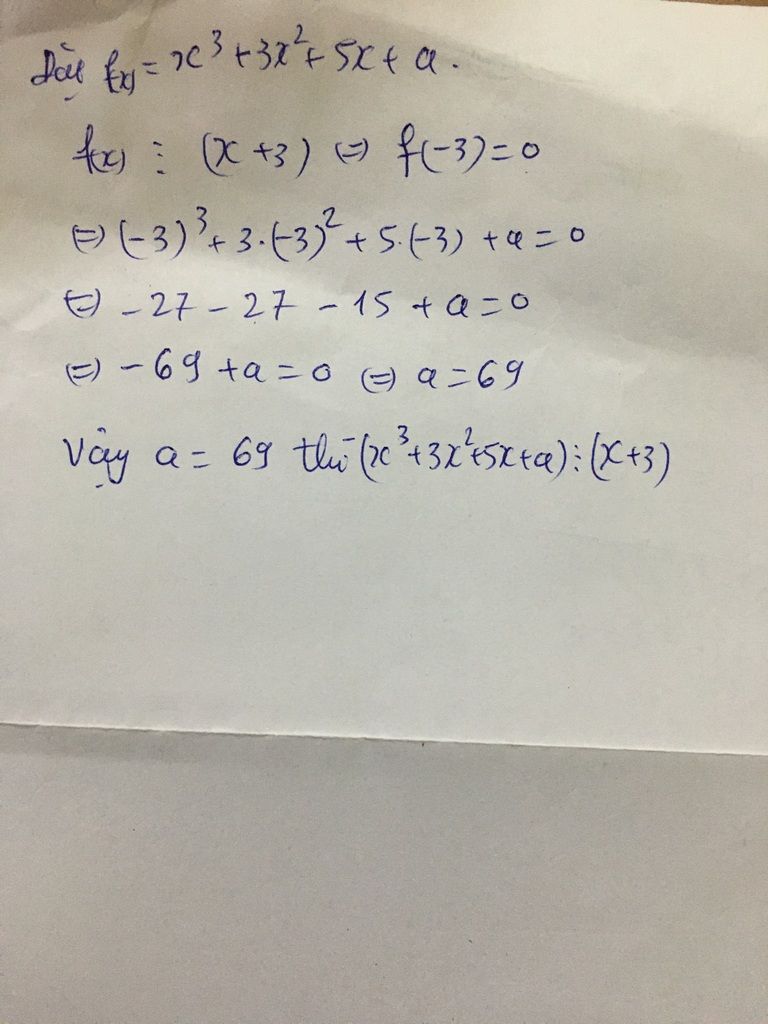 Đặt f(x) = x³ + 3x² + 5x + a.
f(x) ⋮ (x + 3) ⇔ f(-3) = 0
⇔ (-3)³ + 3.(-3)² + 5.(-3) + a = 0
⇔ -27 - 27 - 15 + a = 0
⇔ -69 + a = 0 ⇔ a = 69
Vậy a = 69 thì (x³+3x²+5x+a) ⋮ (x+3)